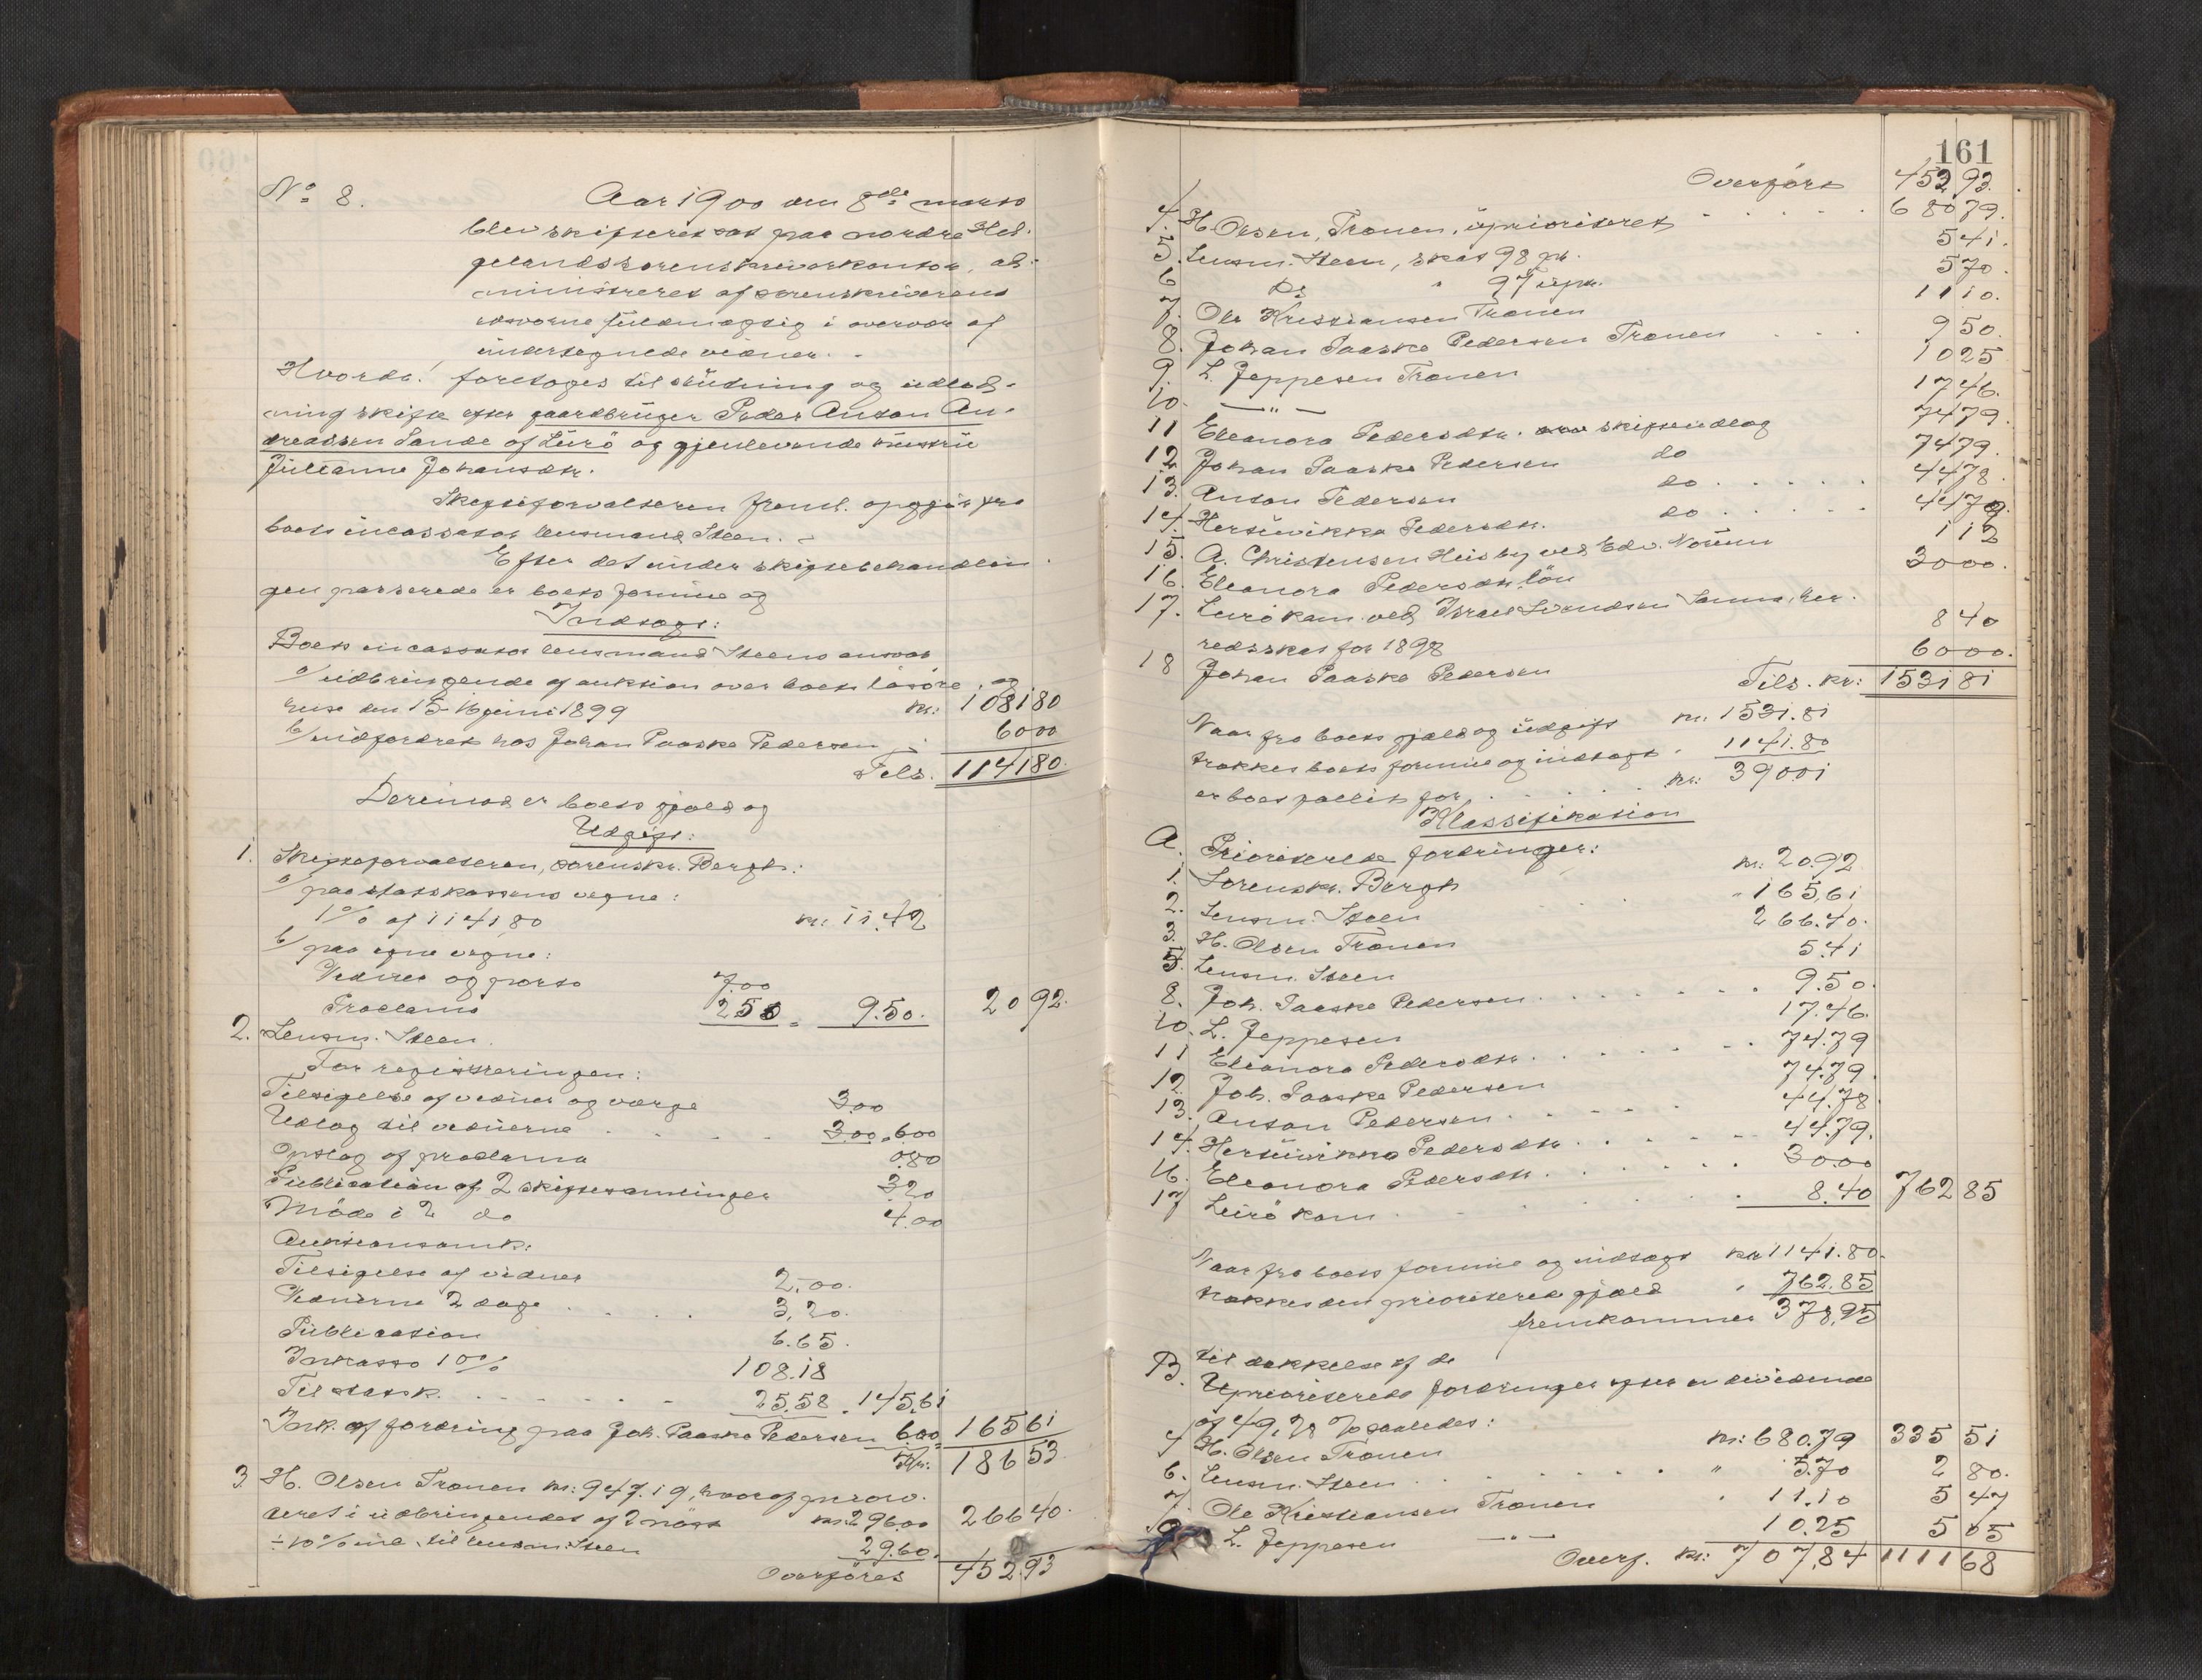 No 8. Aar 1900 den 8de marts
blev skifteret sat paa nordre Hel-
gelands sorenskriverkontor, ad-
ministreret af sorenskriverens
edsvorne fuldmægtig i overvær af
undertegnede vidner. -
Hvorda! foretoges til slutning og udlod-
ning skifte efter gaardbruger Peder Anton An-
dreassen Sande af Lurö og gjenlevende hustru
Julianne Johansdtr.
Skifteforvalteren freml. opgjör fra
boets incassator lensmand Steen. -
Efter det under skiftebehandlin-
gen passerede er boets formue og
Indtægt:
Boets incassator lensmand Steens ansvar
a/ udbringende af auktion over boets lösöre og
huse den 15-16 juni 1899 kr: 1081 80
b/ indfordret hos Johan Paaske Pedersen " 60 00
Tils. 1141 80.
Derimod er boets gjæld og
Udgift:
1. Skifteforvalteren, sorenskr. Bergh:
a/ paa statskassens vegne:
1% af 1141 80 kr: 11.42
b/ paa egne vegne:
Vidner og porto 7.00
Proclama 2 50 " 9.50. 20 92.
2. Lensm. Steen.
For registreringen:
Tilsigelse af vidner og værge 3.00
Udlæg til vidnerne 3.00 " 6.00
Opslag af proclama 0.80
Publication af 2 skiftesamlinger 3.20
Möde i 2 do 4.00
Auktionsomk:
Tilsigelse af vidner 2.00.
Vidnerne 2 dage 3,20.
Publication 6.65.
Inkasso 10% 108.18
Til statsk. 25.58 " 145,61
Ink. af fordring paa Joh. Paaske Pedersen 6.00 165 61
186 53.
3. H. Olsen Tronen kr: 947.19, hvoraf priori-
teret i udbringendet af 2 nöst kr: 296.00 266 40.
÷ 10% ink. til lensm: Steen 29.60.
Overföres 452.93
161
Overfört 452 93.
4. H. Olsen, Tronen, uprioriteret 680 79.
5. Lensm. Steen, skat 98 pr. 5 41.
6 Do " 97 upr. 5 70.
7. Ole Kristiansen Tronen 11 10.
8. Johan Paaske Pedersen Tronen 9 50.
9. L. Jeppesen Tronen 10 25
10. — " — 17 46.
11 Eleonora Pedersdtr. skifteudlæg 74 79.
12. Johan Paaske Pedersen do 74 79.
13. Anton Pedersen do 44 78.
14. Hersmikka Pedersdtr. do 44 79.
15. A. Christensen Heisby ved Edv. Norum 1 12
16. Eleonora Pedersdtr. lön 30 00.
17. Lurö kom. ved Israel Svendsen Sanna, her-
redsskat for 1898 8 40
18 Johan Paaske Pedersen 60 00.
Tils. kr: 1531 81
Naar fra boets gjæld og udgift kr. 1531.81
trækkes boets formue og indtægt " 1141.80
er boet fallit for kr: 390.01
Klassifikation
A. Prioriterede fordringer:
1. Sorenskr. Bergh kr: 20.92
2. Lensm. Steen " 165,61
3. H. Olsen Tronen 266.40.
5. Lensm. Steen 5.41
8. Joh. Paaske Pedersen 9.50.
10. L. Jeppesen 17.46.
11 Eleonora Pedersdtr. 74.79
12. Joh. Paaske Pedersen 74.79.
13. Anton Pedersen 44.78
14. Hersmikka Pedersdtr. 44.79.
16. Eleonora Pedersdtr. 30.00
17 Lurö kom. 8.40 762 85
Naar fra boets formue og indtægt kr 1141.80.
trækkes den prioriterede gjæld " 762.85
fremkommer 378,95
til dækkelse af de
B. Uprioriterede fordringer efter en dividende
af 49,28 % saaledes:
4 H. Olsen Tronen kr: 680.79 335 51
6. Lensm. Steen " 5.70 2 80.
7. Ole Kristiansen Tronen " 11.10 5 47
9 L. Jeppesen — " — 10.25 5 05
Overf. kr: 707,84 1111 68